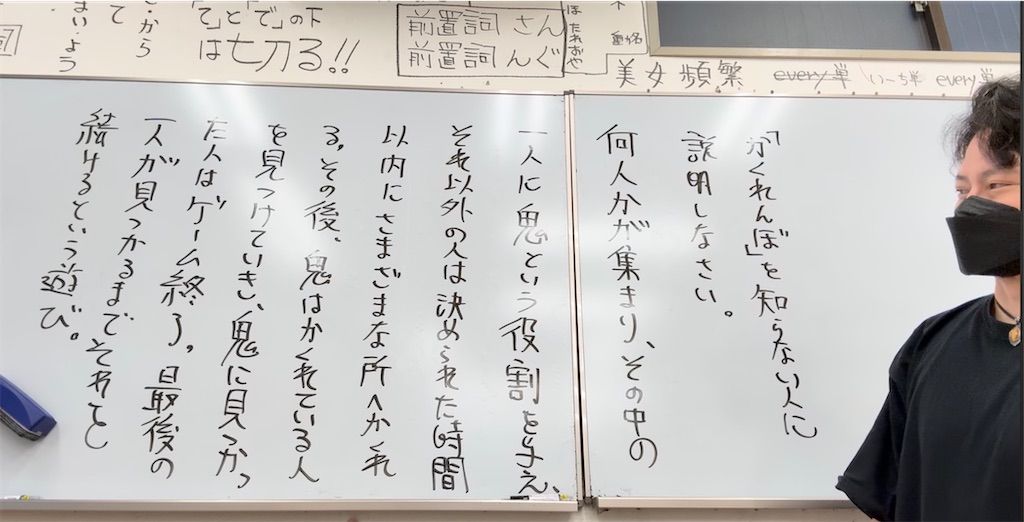 から
まい・よう
「て」と「で」の下
は切る!!
前置詞 さん
前置詞 んぐ
美女頻繁 every単 いっち単 every単
「かくれんぼ」を知らない人に
説明しなさい。
何人かが集まり、その中の
一人に鬼という役割を与え、
それ以外の人は決められた時間
以内にさまざまな所へかくれ
る。その後、鬼はかくれている人
を見つけていき、鬼に見つかっ
た人はゲーム終了。最後の
一人が見つかるまでそれを
続けるという遊び。